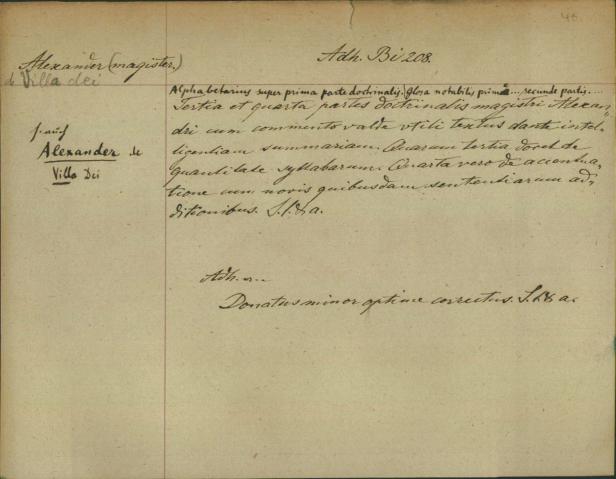 40
Alexander (magister.)
de Villa dei
Adh. Bi 208.
s. auch
Alexander de
Villa Dei
Alphabetarius super prima parte doctrinalis. Glosa notabilis prime... secunde partis...
Tertia et quarta partes doctrinalis magistri Alexan„
dri cum commento valde vtili textus dante intel„
ligentiam summariam. Quarum tertia docet de
quantitate syllabarum. Quarta vero de accentua„
tione cum novis quibusdam sententiarum ad„
ditionibus. S. l. & a.
Adh.
Donatus minor optime correctus. S. l. & a.